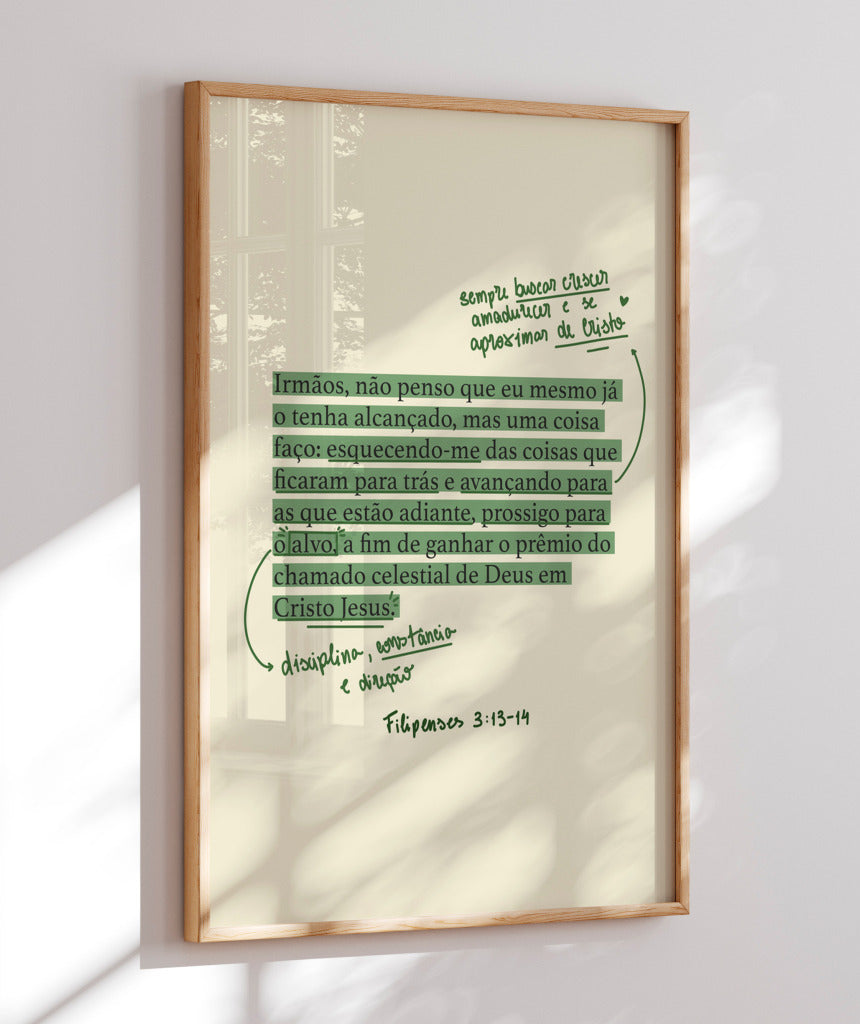 sempre buscar crescer
amadurecer e se
aproximar de Cristo
Irmãos, não penso que eu mesmo já
o tenha alcançado, mas uma coisa
faço: esquecendo-me das coisas que
ficaram para trás e avançando para
as que estão adiante, prossigo para
o alvo, a fim de ganhar o prêmio do
chamado celestial de Deus em
Cristo Jesus.
disciplina, constância
e direção
Filipenses 3:13-14